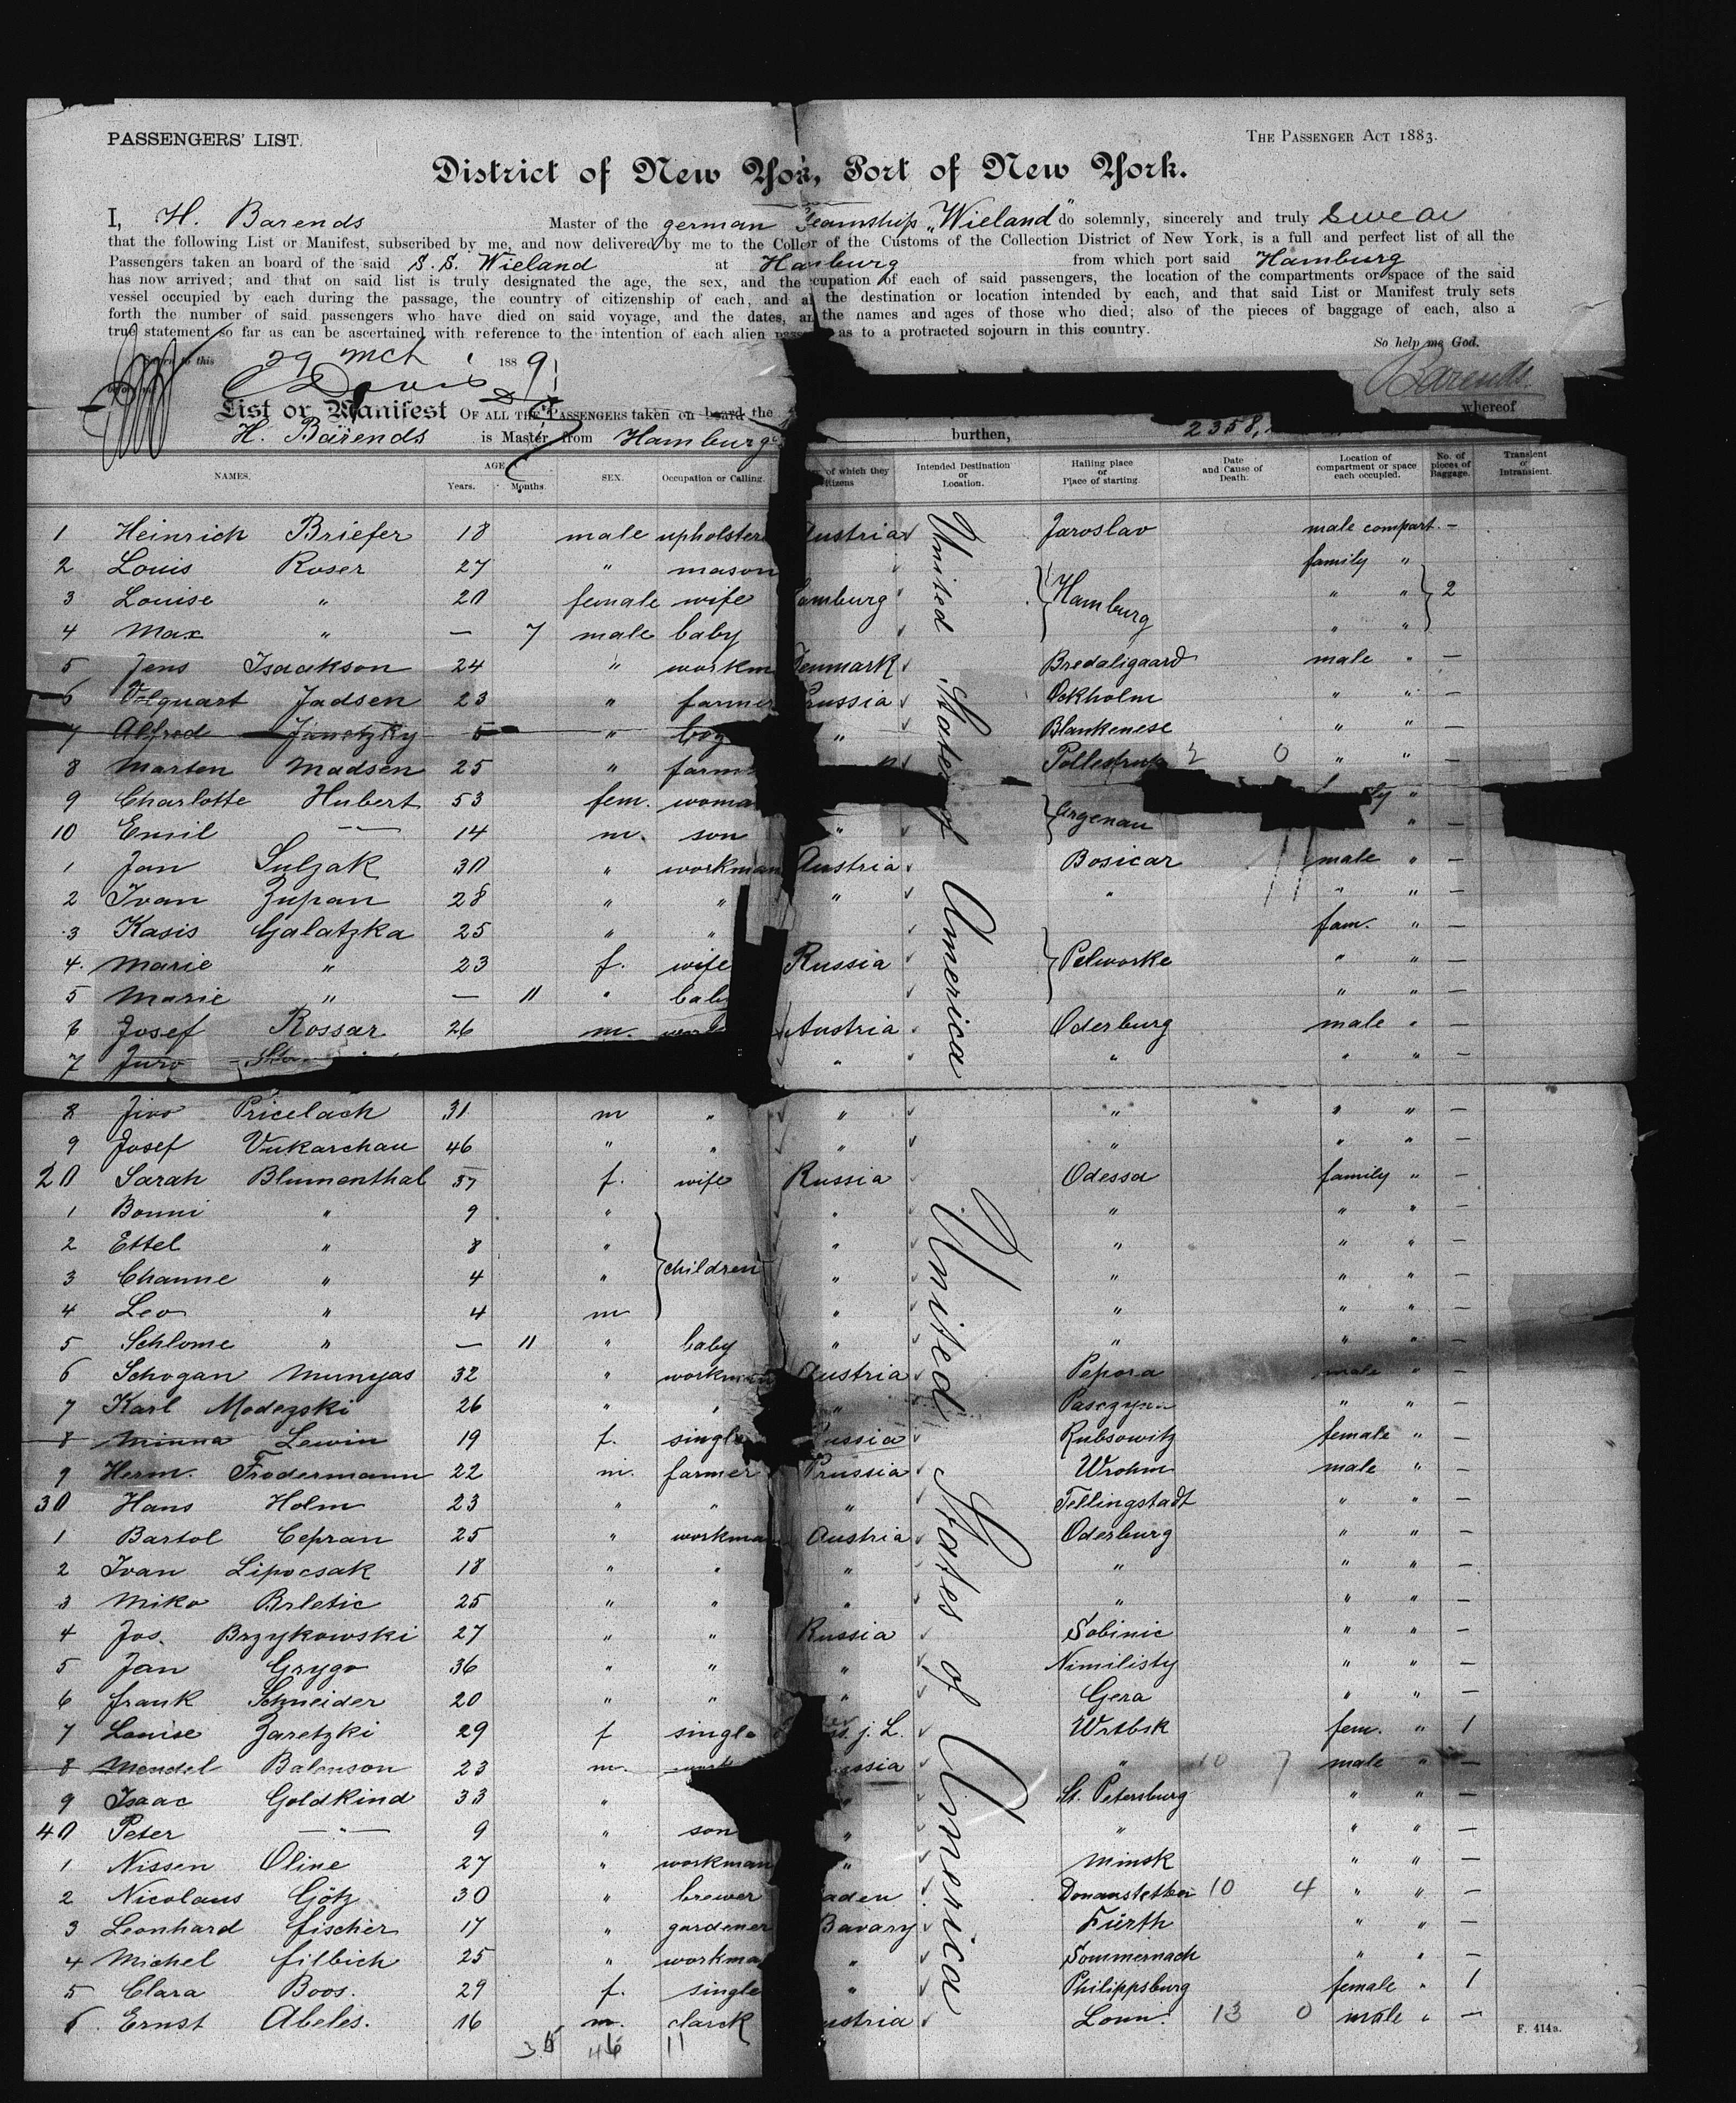 PASSENGERS' LIST.
THE PASSENGER ACT 1883.
District of New Yo, Port of New York.
I, H. Barends Master of the german Steamship „Wieland" do solemnly, sincerely and truly swear
that the following List or Manifest, subscribed by me, and now delivered by me to the Colle r of the Customs of the Collection District of New York, is a full and perfect list of all the
Passengers taken an board of the said S. S. Wieland at Hamburg from which port said Hamburg
has now arrived; and that on said list is truly designated the age, the sex, and the ccupation of each of said passengers, the location of the compartments or space of the said
vessel occupied by each during the passage, the country of citizenship of each, and a the destination or location intended by each, and that said List or Manifest truly sets
forth the number of said passengers who have died on said voyage, and the dates, an the names and ages of those who died; also of the pieces of baggage of each, also a
true statement so far as can be ascertained with reference to the intention of each alien as to a protracted sojourn in this country.
So help me God.
to this 29 mch 1889
Barends
List or Manifest OF ALL THE PASSENGERS taken on board the whereof
H. Barends is Master, from Hamburg burthen, 2358,
NAMES. AGE Years. Months. SEX. Occupation or Calling. of which they tizens Intended Destination or Location. Hailing place or Place of starting. Date and Cause of Death. Location of compartment or space each occupied. No. of pieces of Baggage. Transient or Intransient.
United States of America
1 Heinrich Briefer 18 male upholster ustria Jaroslav male compart. —
2 Louis Roser 27 " mason family "
3 Louise " 20 female wife amburg Hamburg " " 2
4 Max " — 7 male baby " "
5 Jens Isaakson 24 " workm Denmark Bredaligaard male " —
6 Volquart Jadsen 23 " farmer Prussia Ockholm " " —
7 Alfred Janetzky 5 " boy " Blankenese " " —
8 Marten Madsen 25 " farm Pollestrup 0 " " —
9 Charlotte Hubert 53 fem. woma Argenau ly "
10 Emil — 14 m. son " " —
1 Jan Sulzak 30 " workman Austria Bosicar 11 male " —
2 Ivan Zupan 28 " " " " " " —
3 Kasis Galatzka 25 " " fam. " —
4 Marie " 23 f. wife Russia Pelworke " " —
5 Marie " — 11 " baby " " —
6 Josef Rossar 26 m. work Austria Oderburg male " —
7 Juro " " " " —
8 Jivo Pricelach 31 m " " " " " —
9 Josef Vukarchau 46 " " " " " " —
20 Sarah Blumenthal 37 f. wife Russia Odessa family " —
1 Bonni " 9 " " " " " —
2 Ettel " 8 " " " " " —
3 Channe " 4 " children " " " " —
4 Leo " 4 m " " " " —
5 Schlome " — 11 " baby " " " " —
6 Schogan Munyas 32 " workman Austria Pepora male " —
7 Karl Modezski 26 " " " " " —
8 Minna Lewin 19 f. single ussia Rubsowitz female " —
9 Herm. Frodermann 22 m. farmer Prussia Wrohm male " —
30 Hans Holm 23 " " " Tellingstadt " " —
1 Bartol Cepran 25 " workma Austria Oderburg " " —
2 Ivan Lipocsak 18 " " " " " " —
3 Miko Brletic 25 " " " " " " —
4 Jos. Brzykowski 27 " " Russia Sobinic " " —
5 Jan Grygo 36 " " " Nimilisty " " —
6 Frank Schneider 20 " " " Gera " " —
7 Louise Zaretzki 29 f single j. L. Witbsk fem. " 1
8 Mendel Balenson 23 m. work ussia " 10 7 male " —
9 Isaac Goldkind 33 " St. Petersburg " " —
40 Peter —"— 9 " son " " " " —
1 Nissen Oline 27 " workman " Minsk " " —
2 Nicolaus Götz 30 " brewer aden Donaustetten 10 4 " " —
3 Leonhard Fischer 17 " gardener Bavary Fürth " " —
4 Michel Filbich 25 " workma " Sommernach " " —
5 Clara Boos. 29 f. single " Philippsburg female " 1
6 Ernst Abeles. 16 m. clarck ustria Loun. 13 0 male " —
United States of America
46 11
F. 414a.